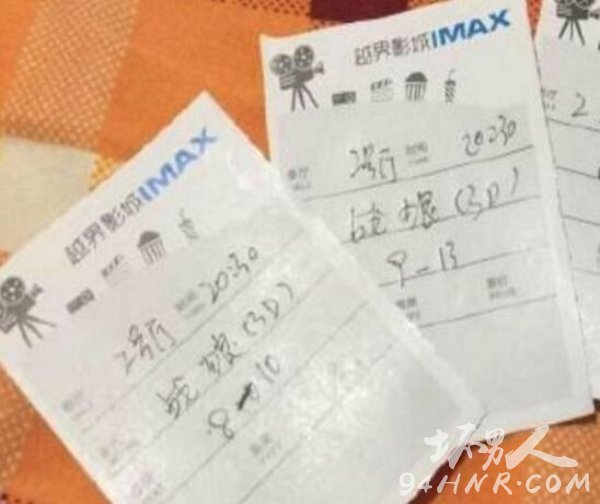 越界影城IMAX
2号厅 20:30
战狼(3D)
8-10
越界影城IMAX
2号厅 时间 20:30
战狼(3D)
9-13
票价
2
坏男人
94HNR.COM